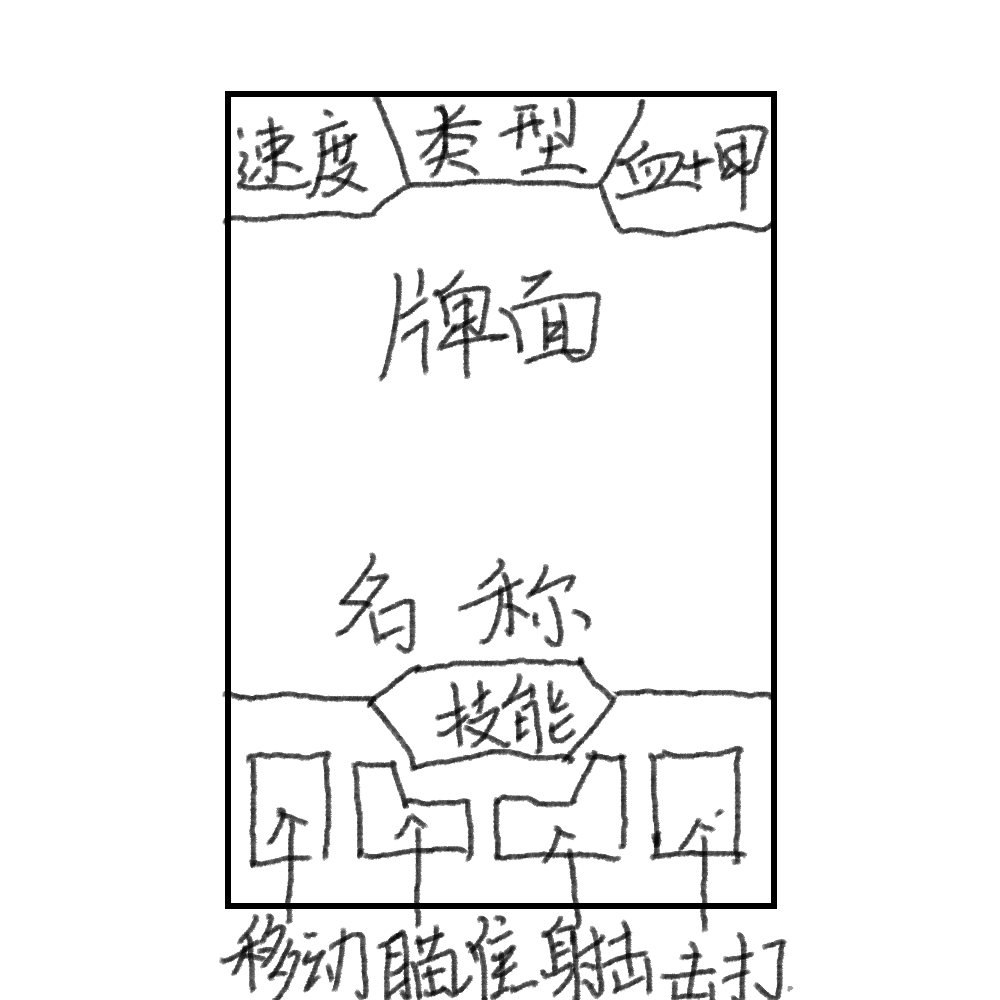 速度 类型 血+甲
牌面
名称
技能
移动 瞄准 射击 击打